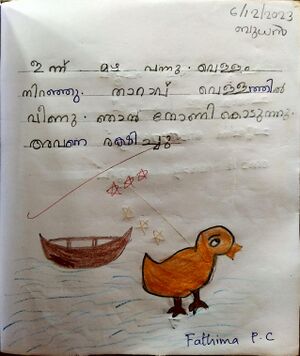 6/12/2023
ബുധൻ
ഇന്ന് മഴ വന്നു. വെള്ളം
നിറഞ്ഞു. താറാവ് വെള്ളത്തിൽ
വീണു. ഞാൻ തോണി കൊടുത്തു.
അവനെ രക്ഷിച്ചു
Fathima P.C